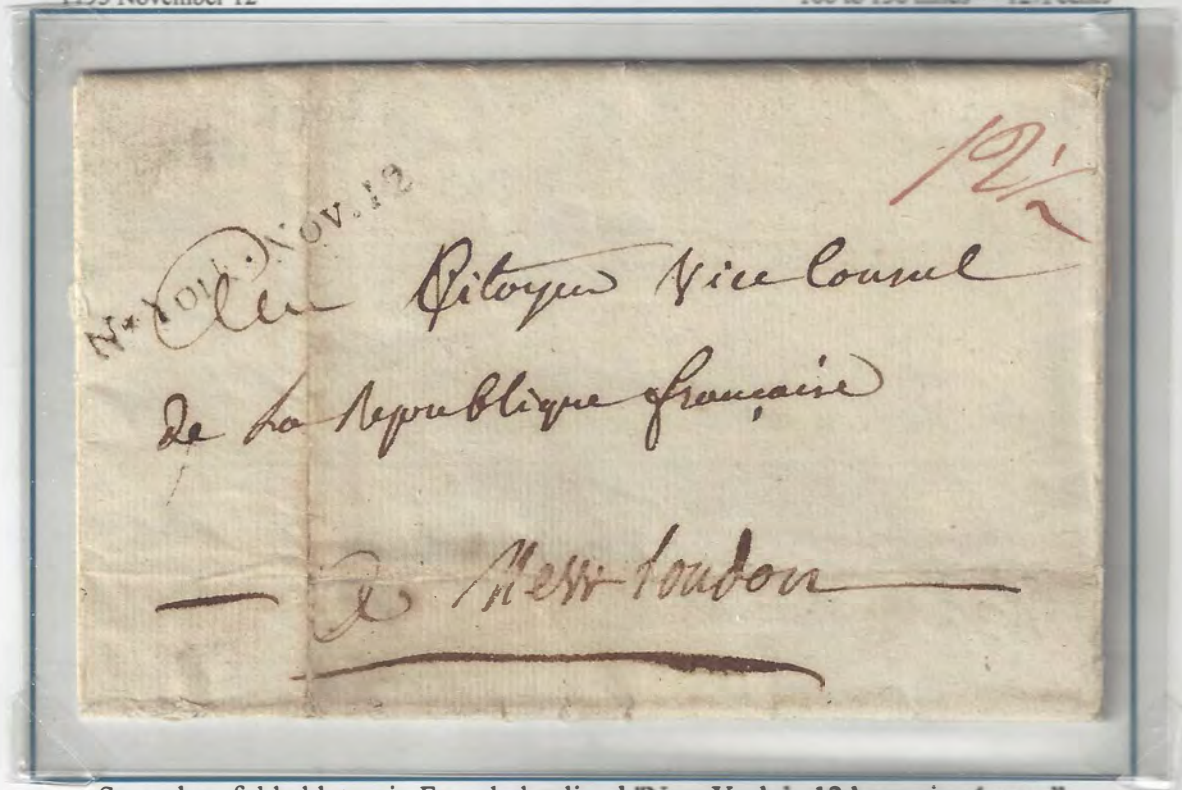 12½
N*York. Nov. 12
Au Citoyen Vice Consul
de La Republique française
a New London